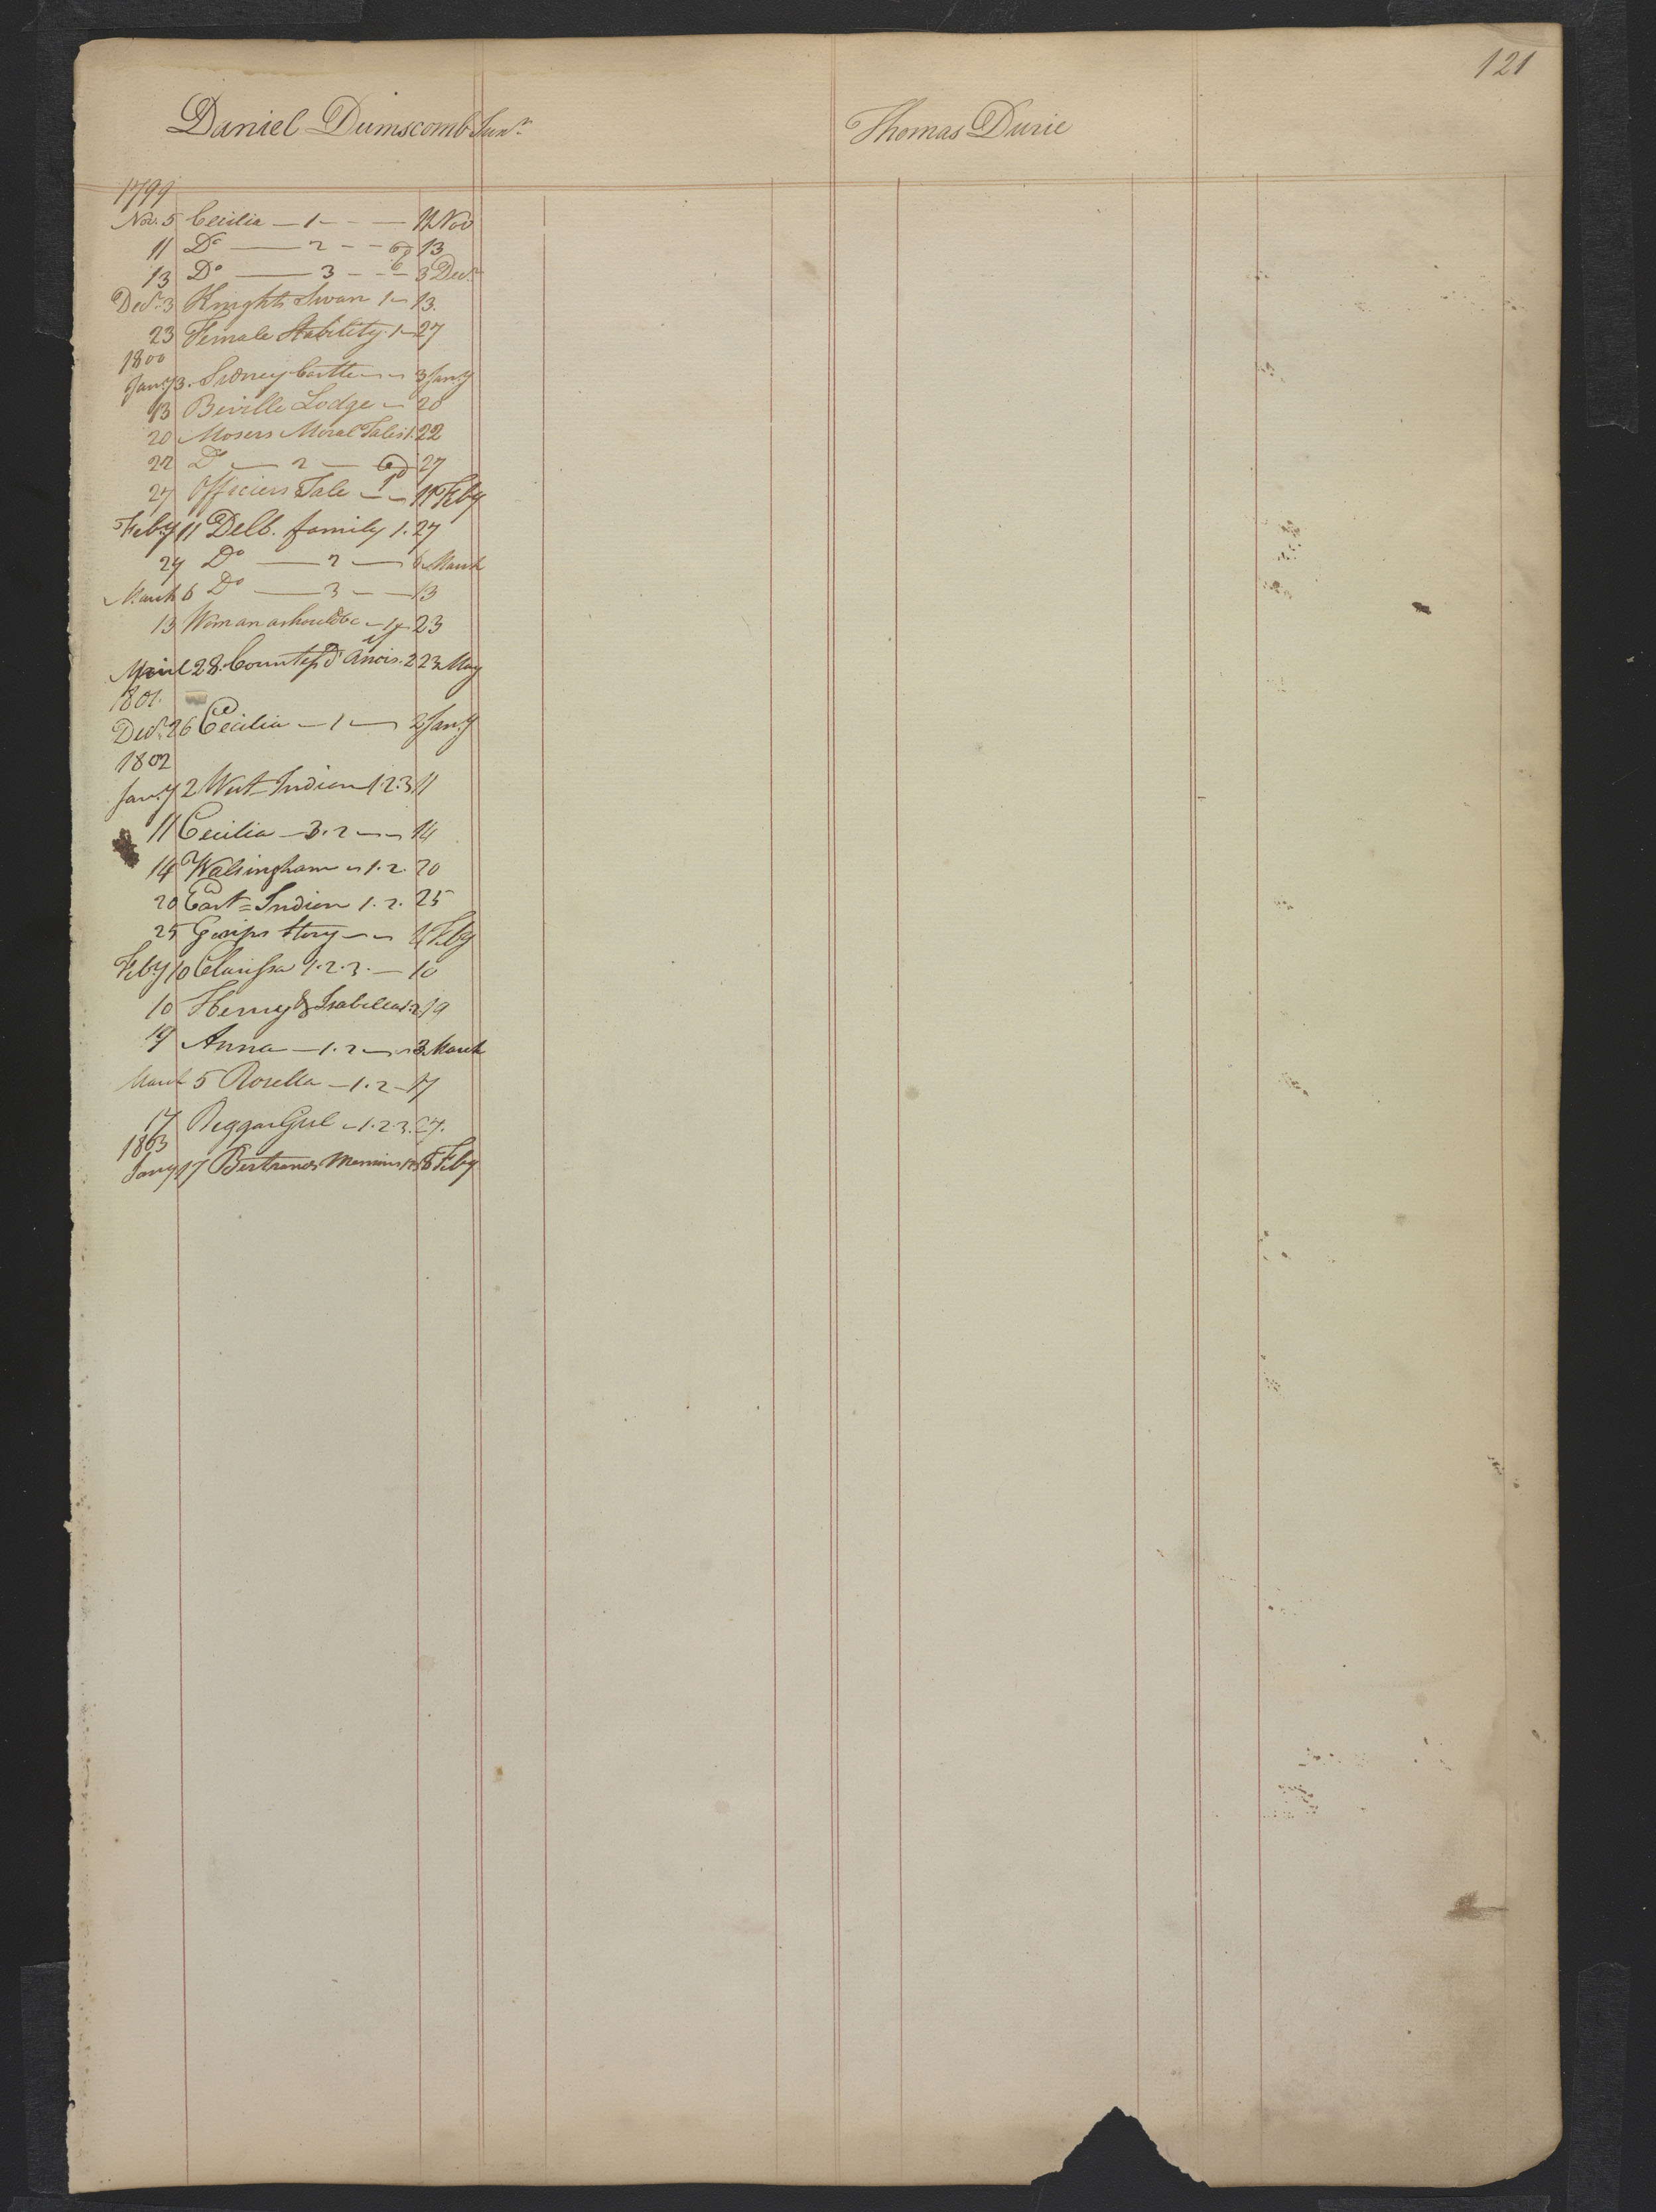 121
Daniel Dumscomb Junr.
Thomas Durie
1799
Nov. 5 Cecilia — 1 - - — 11 Nov
11 Do — 2 - - 6d 13
13 Do — 3 - - 6 3 Decr
Decr. 3 Knights Swan 1 - 13.
23 Female Stability. 1 - 27
1800
Jany 3. Sidney Castle - - 3 Jany
13 Beville Lodge - 20
20 Mosers Moral Tales 1. 22
22 Do — 2 — 6d 27
27 Officers Tale — - 11 Feby
Feby 11 Delb. family 1. 27
27 Do — 2 — 6 March
March 6 Do — 3 — 13
13 Woman as should be - 23
April 28. Countess d' 2 23 May
1801.
Decr. 26 Cecilia — 1 — 2 Jany
1802
Jany 2 West-Indian 1.2.3 11
11 Cecilia — 3.2 — - 14
14 Walsingham - 1.2. 20
20 East=Indian 1.2. 25
25 Gossips Story - - 4 Feby
Feby 10 Clarissa 1.2.3. — 10
10 Henry & Isabella 1.2 19
19 Anna — 1.2 — 3 March
March 5 Rosella — 1.2 — 17
17 Beggar Girl - 1.2.3. 27.
1803
Jany 17 Bertrands 8 Feby